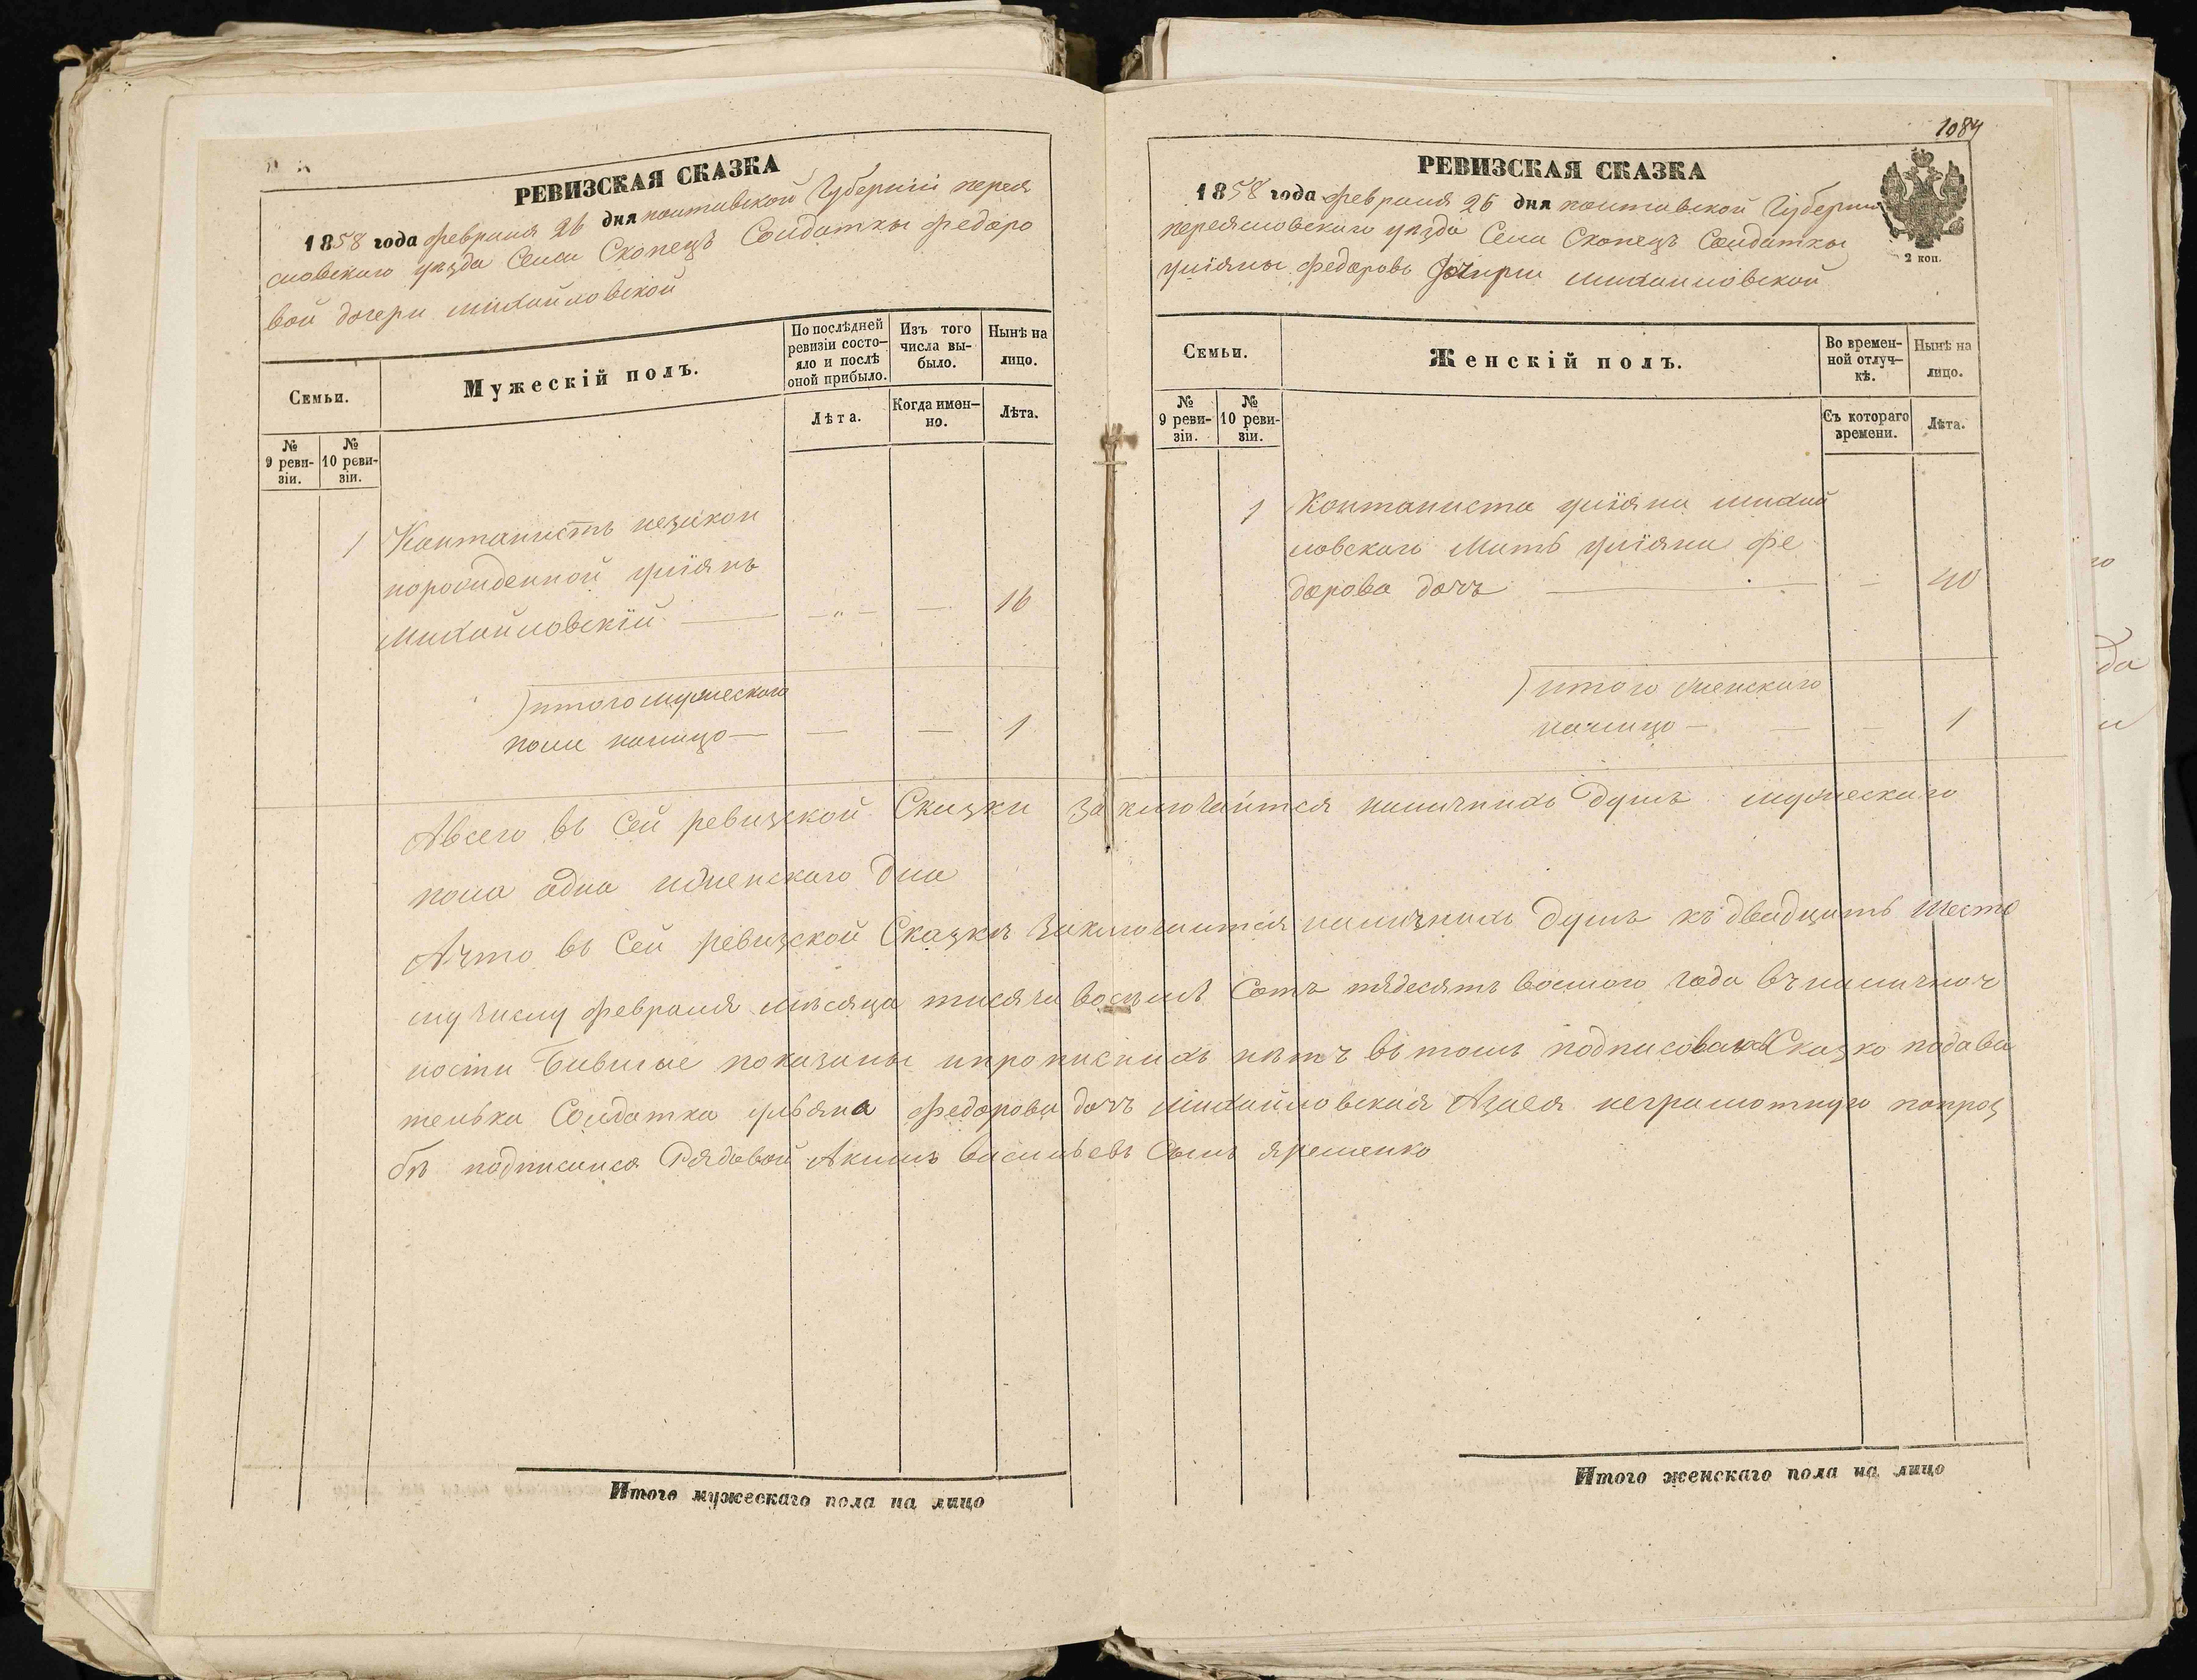 РЕВИЗСКАЯ СКАЗКА
1858 года февраля 26 дня полтавской Губернїи перея
словского уѣзда Села Скопецъ Солдатки федоро
вой дочери михайловской
Семьи.
Мужескій полъ.
По послѣдней ревизіи состо-
яло и послѣ
оной прибыло.
Изъ того
числа вы-
было.
Нынѣ на
лицо.
№
9 реви-
зіи.
№
10 реви-
зіи.
Лѣта.
Когда имен-
но.
Лѣта.
1 Кантанистъ незакон
норожденной улїянъ
Михайловскїй — — „ — — 16
итого мужеского
пола налицо — — — 1
1084
РЕВИЗСКАЯ СКАЗКА
1858 года февраля 26 дня полтавской Губернии
переясловского уѣзда Села Скопецъ Солдатки
улїяны федоровъ дочири михайловской
2 коп.
Семьи.
Женскій полъ.
Во времен-
ной отлуч-
кѣ.
Нынѣ на
лицо.
№
9 реви-
зіи.
№
10 реви-
зіи.
Съ котораго
времени.
Лѣта.
1 Контаниста улїяна михай
ловского Мать улїяна фе
дорова дочъ — — 40
итого женского
налицо — — — 1
Авсего въ Сей ревизской Сказки заключаится наличнихъ Душъ мужеского
пола одна иженского Дна
Ачто въ Сей ревизской Сказкѣ Заключаится наличнихъ Душъ къ двадцать шесто
му числу февраля мѣсяца тисяча восѣмъ Сотъ пядесятъ восмого года въналичноч
ности бившые показаны ипрописнихъ нѣтъ въ томъ Сказко подава
телька Солдатка ульяна федорова дочъ михайловская Азаея неграмотную попроз
бѣ подписался Рядовой Акимъ васильевъ Сынъ яременко
Итого мужескаго пола на лицо
Итого женскаго пола на лицо